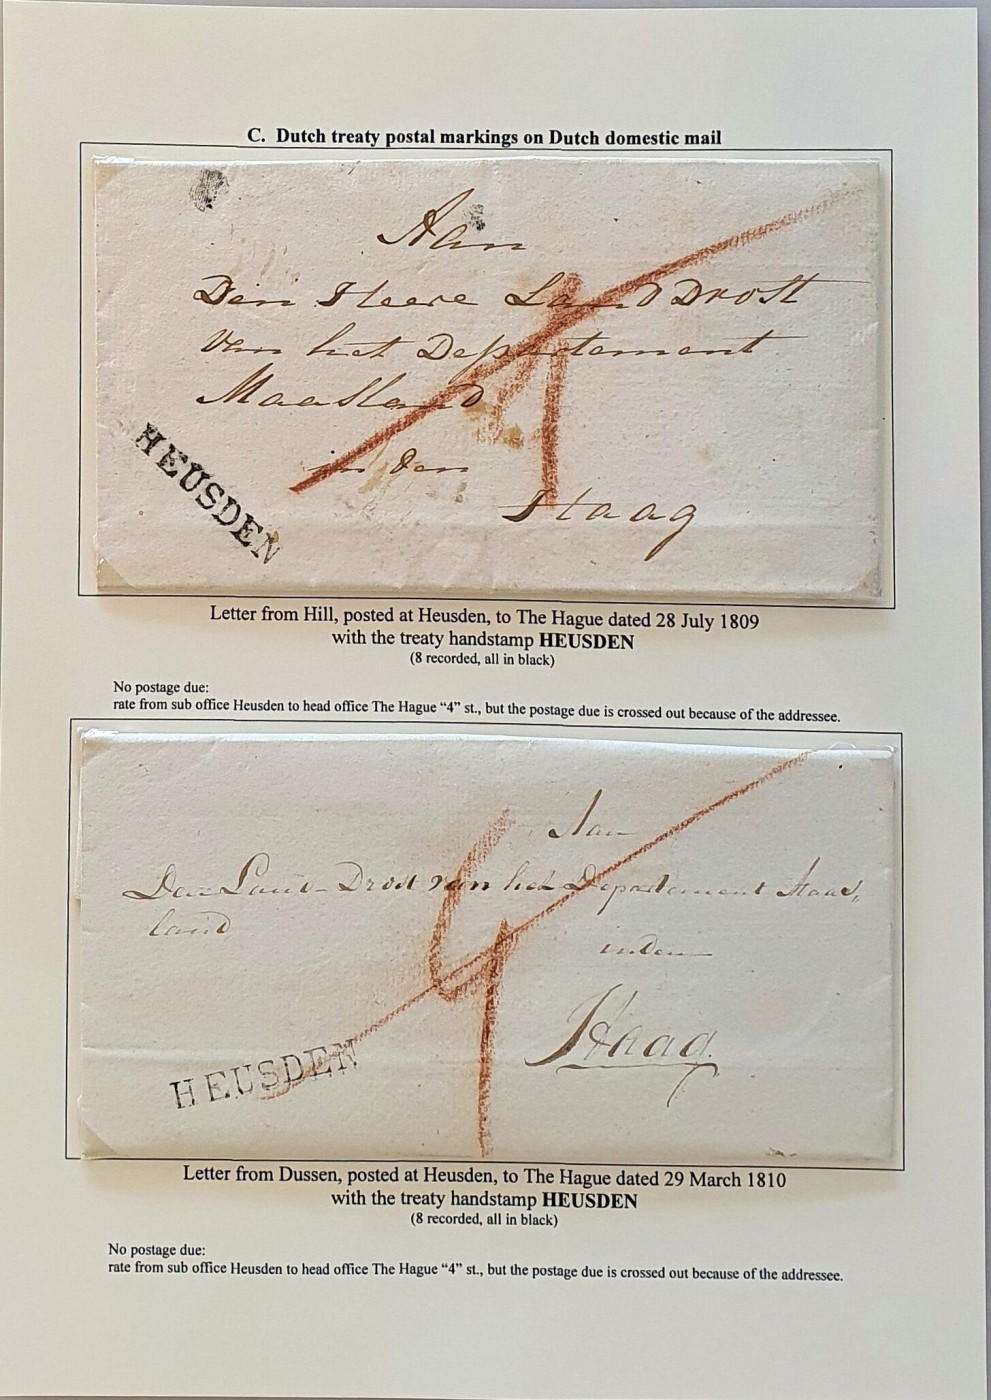 C. Dutch treaty postal markings on Dutch domestic mail
Aan
Den Heere Land Drost
Van het Departement
Maasland
in den
Haag
HEUSDEN
4
Letter from Hill, posted at Heusden, to The Hague dated 28 July 1809
with the treaty handstamp HEUSDEN
(8 recorded, all in black)
No postage due:
rate from sub office Heusden to head office The Hague “4” st., but the postage due is crossed out because of the addressee.
Aan
Den Land-Drost van het Departement Maas,
land
in den
Haag.
HEUSDEN
4
Letter from Dussen, posted at Heusden, to The Hague dated 29 March 1810
with the treaty handstamp HEUSDEN
(8 recorded, all in black)
No postage due:
rate from sub office Heusden to head office The Hague “4” st., but the postage due is crossed out because of the addressee.